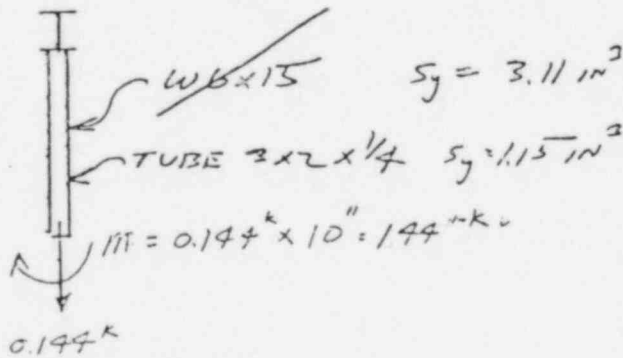 W6x15 Sy = 3.11 IN³
TUBE 3x2x1/4 Sy=1.15 IN³
M = 0.144ᵏ x 10" = 144"⁻ᵏ
0.144ᵏ